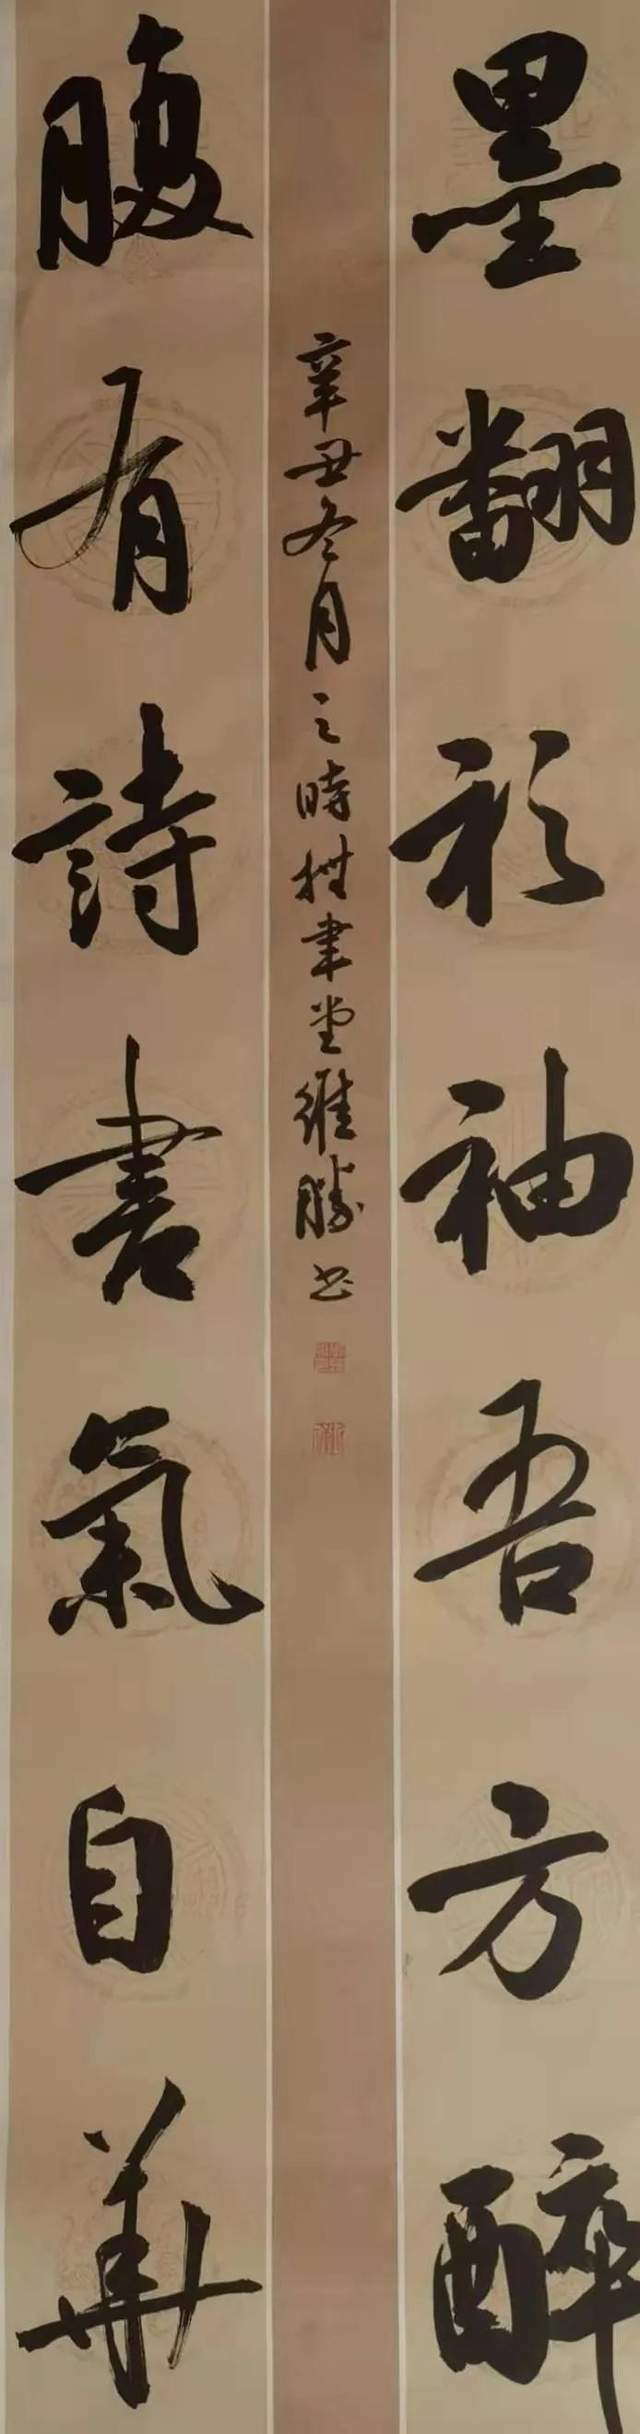 墨翻衫袖吾方醉
辛丑冬月之時聿堂維勝书
腹有詩書氣自華